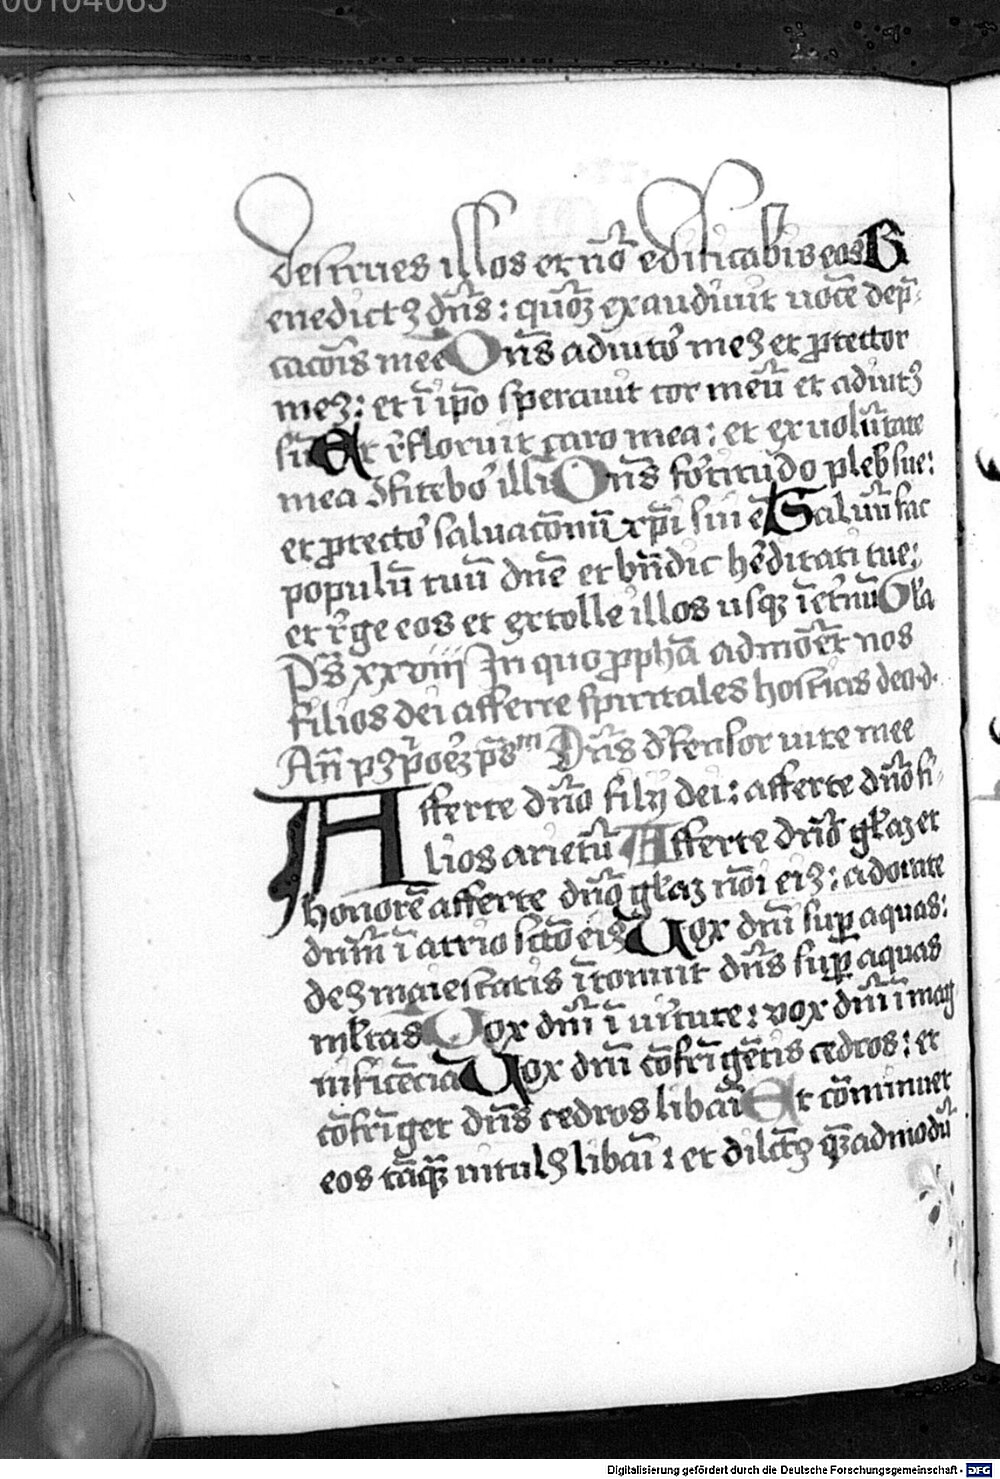 00104065
destrues illos et nō edificabis eos B
enedictꝫ dn̄s: qm̄ exaudiuit uocē dep̄
cacōis mee Dn̄s adiutoʳ meꝫ et ꝓtector
meꝫ: et ī ip̄o sperauit cor meū et adiutꝫ
sū Et r̄floruit caro mea: et ex uolūtate
mea ꝯfiteboʳ illi Dn̄s fortitudo pleb sue:
et ꝓtectoʳ saluacōnū xp̄i sui ē Saluū fac
populū tuū dn̄e et bn̄dic hēditati tue:
et r̄ge eos et extolle illos usqꝫ ī et̄nū Gl̄a
Ps̄ xxviij In quo ꝓph̄a admōet nos
filios dei afferre spiritales hostias deo d.
An̄ Dn̄s dʳfensor uite mee
Afferte dn̄o filij dei: afferte dn̄o fi
lios arietū Afferte dn̄o gl̄aꝫ et
honorē afferte dn̄o gl̄aꝫ nōi eiꝫ: adorate
dn̄m ī atrio sc̄o eiꝫ Uox dn̄i suꝑ aquas:
deꝫ maiestatis ītonuit dn̄s suꝑ aquas
ml̄tas Uox dn̄i ī uirtute: vox dn̄i ī mag
nificēcia Uox dn̄i cōfrīgētis cedros: et
cōfrīget dn̄s cedros libāi Et cōminuet
eos tāqꝫ uitulꝫ libāi: et dilc̄tꝫ qꝫadmodū
Digitalisierung gefördert durch die Deutsche Forschungsgemeinschaft - DFG